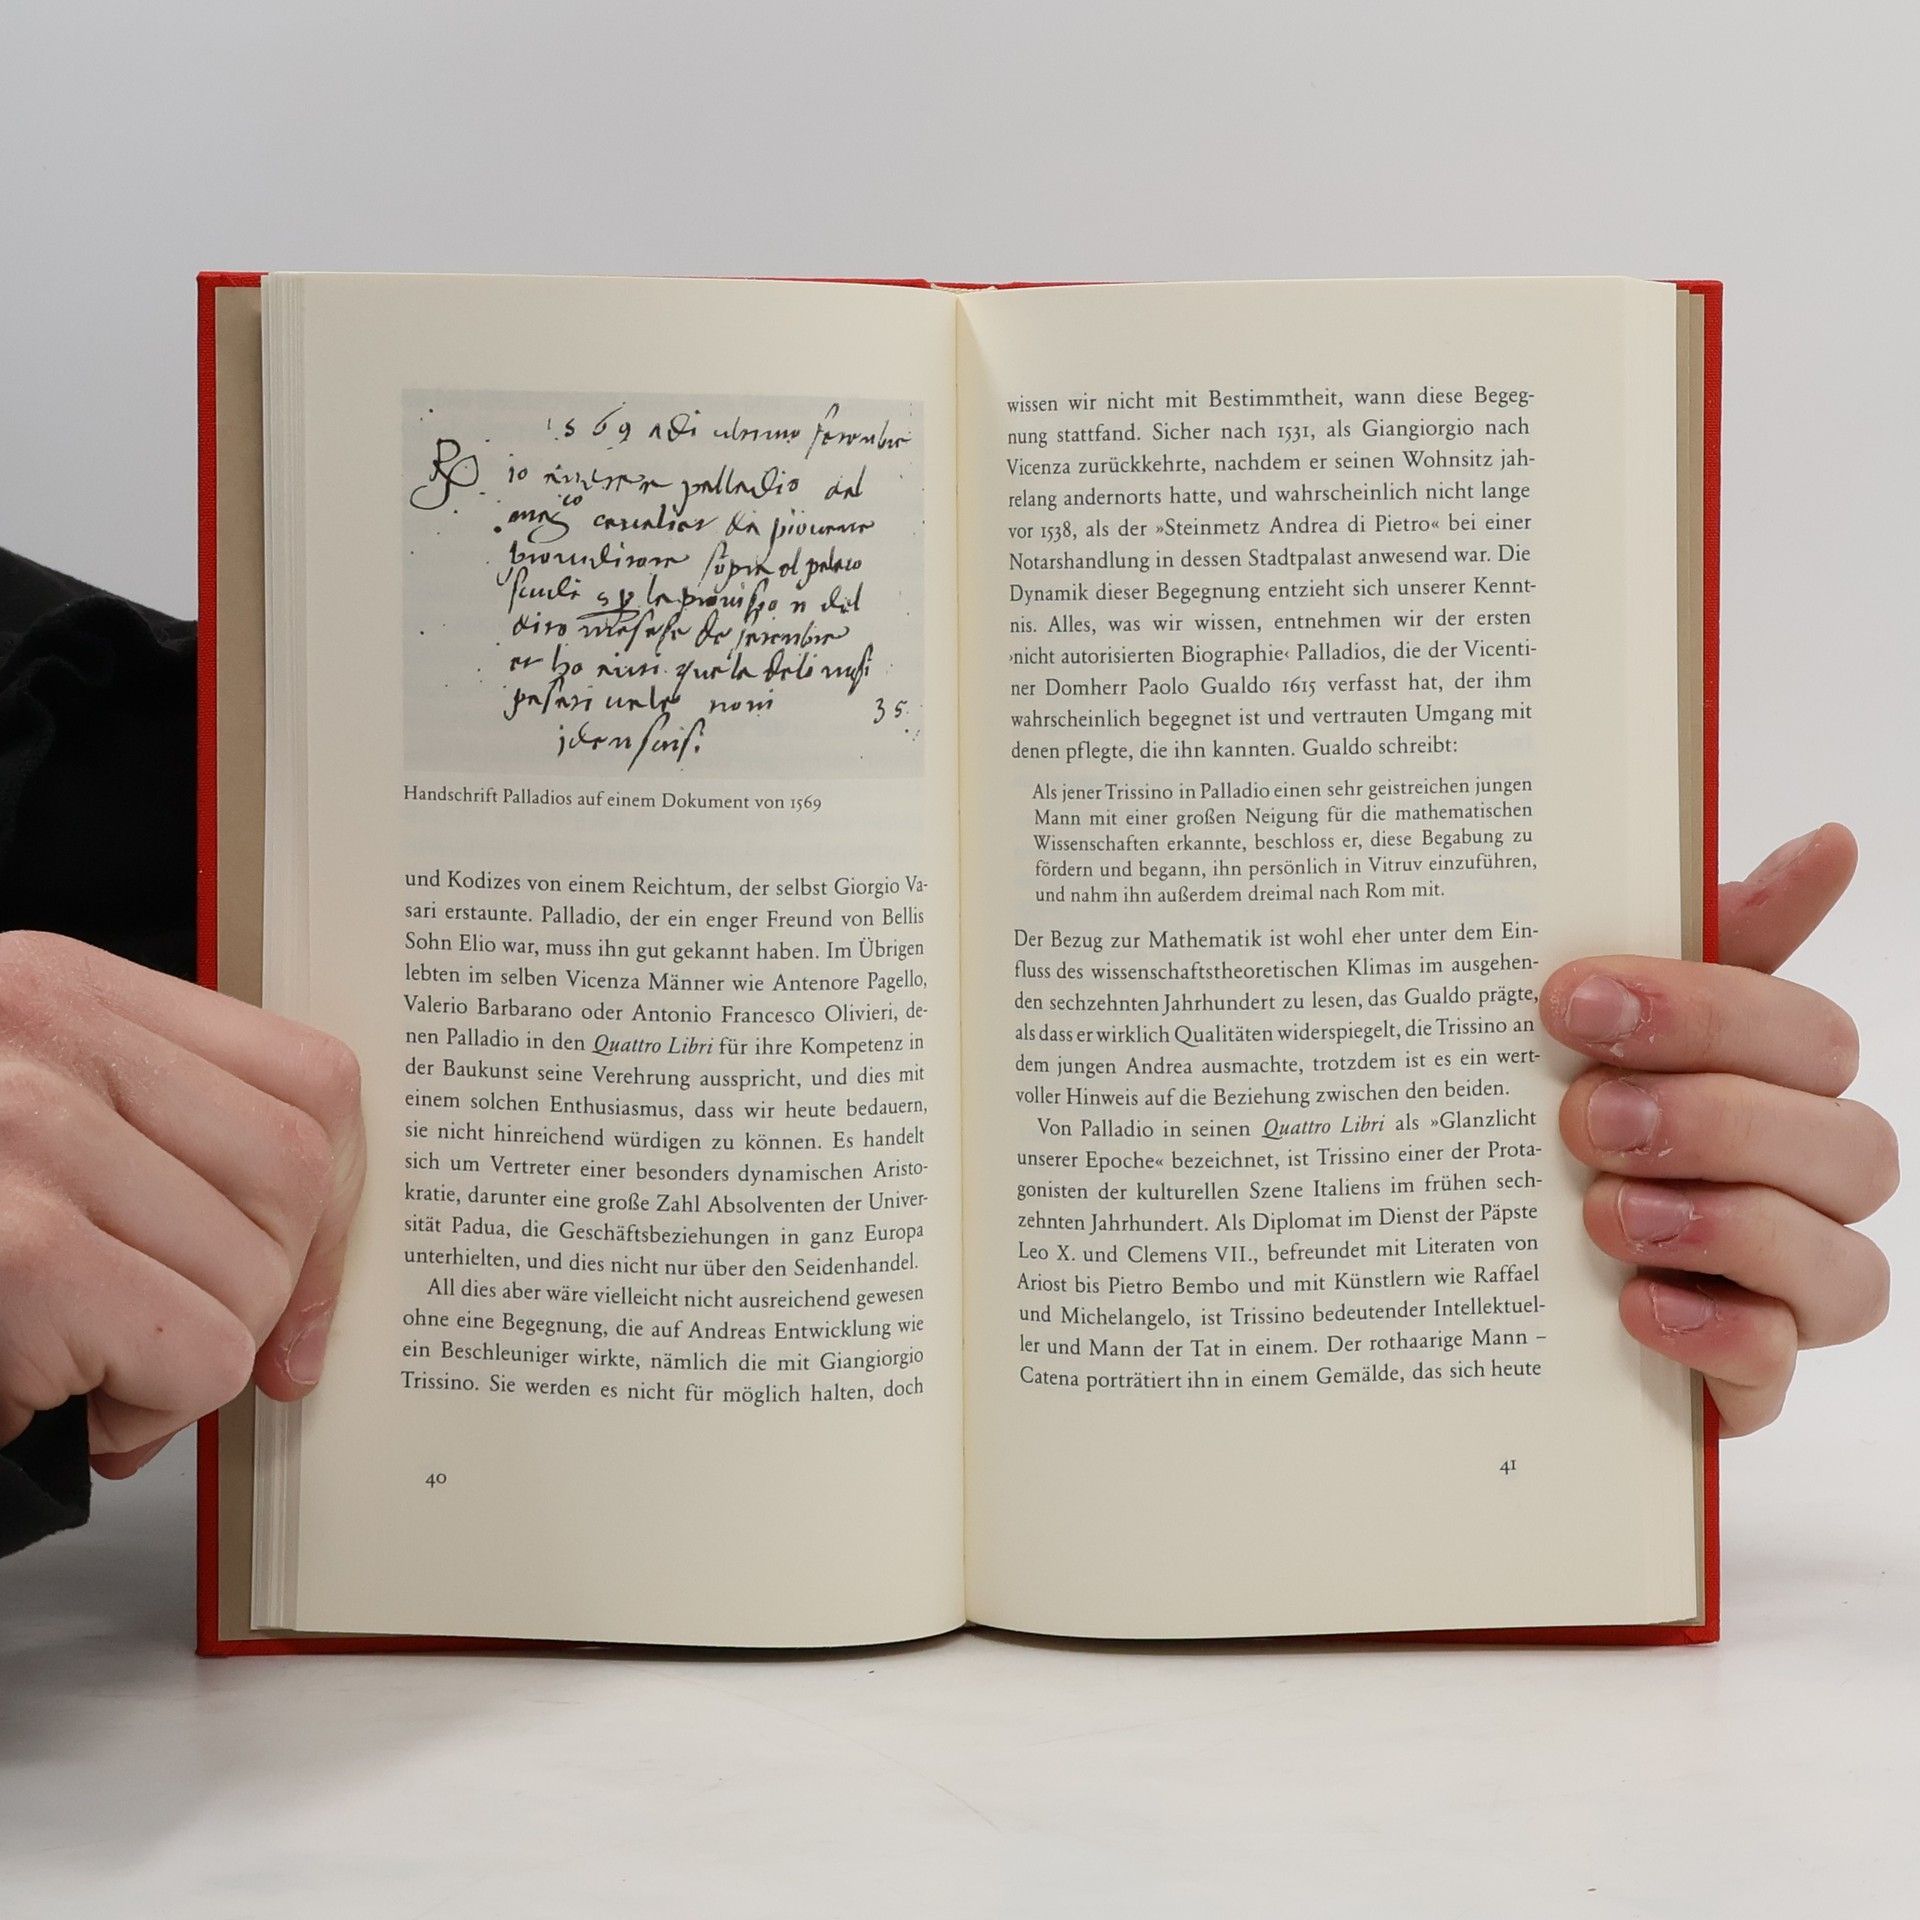 1569 adi ultimo
io palladio dal
sopra el palaco
35
Handschrift Palladios auf einem Dokument von 1569
und Kodizes von einem Reichtum, der selbst Giorgio Va-
sari erstaunte. Palladio, der ein enger Freund von Bellis
Sohn Elio war, muss ihn gut gekannt haben. Im Übrigen
lebten im selben Vicenza Männer wie Antenore Pagello,
Valerio Barbarano oder Antonio Francesco Olivieri, de-
nen Palladio in den Quattro Libri für ihre Kompetenz in
der Baukunst seine Verehrung ausspricht, und dies mit
einem solchen Enthusiasmus, dass wir heute bedauern,
sie nicht hinreichend würdigen zu können. Es handelt
sich um Vertreter einer besonders dynamischen Aristo-
kratie, darunter eine große Zahl Absolventen der Univer-
sität Padua, die Geschäftsbeziehungen in ganz Europa
unterhielten, und dies nicht nur über den Seidenhandel.
All dies aber wäre vielleicht nicht ausreichend gewesen
ohne eine Begegnung, die auf Andreas Entwicklung wie
ein Beschleuniger wirkte, nämlich die mit Giangiorgio
Trissino. Sie werden es nicht für möglich halten, doch
40
wissen wir nicht mit Bestimmtheit, wann diese Begeg-
nung stattfand. Sicher nach 1531, als Giangiorgio nach
Vicenza zurückkehrte, nachdem er seinen Wohnsitz jah-
relang andernorts hatte, und wahrscheinlich nicht lange
vor 1538, als der »Steinmetz Andrea di Pietro« bei einer
Notarshandlung in dessen Stadtpalast anwesend war. Die
Dynamik dieser Begegnung entzieht sich unserer Kennt-
nis. Alles, was wir wissen, entnehmen wir der ersten
›nicht autorisierten Biographie‹ Palladios, die der Vicenti-
ner Domherr Paolo Gualdo 1615 verfasst hat, der ihm
wahrscheinlich begegnet ist und vertrauten Umgang mit
denen pflegte, die ihn kannten. Gualdo schreibt:
Als jener Trissino in Palladio einen sehr geistreichen jungen
Mann mit einer großen Neigung für die mathematischen
Wissenschaften erkannte, beschloss er, diese Begabung zu
fördern und begann, ihn persönlich in Vitruv einzuführen,
und nahm ihn außerdem dreimal nach Rom mit.
Der Bezug zur Mathematik ist wohl eher unter dem Ein-
fluss des wissenschaftstheoretischen Klimas im ausgehen-
den sechzehnten Jahrhundert zu lesen, das Gualdo prägte,
als dass er wirklich Qualitäten widerspiegelt, die Trissino an
dem jungen Andrea ausmachte, trotzdem ist es ein wert-
voller Hinweis auf die Beziehung zwischen den beiden.
Von Palladio in seinen Quattro Libri als »Glanzlicht
unserer Epoche« bezeichnet, ist Trissino einer der Prota-
gonisten der kulturellen Szene Italiens im frühen sech-
zehnten Jahrhundert. Als Diplomat im Dienst der Päpste
Leo X. und Clemens VII., befreundet mit Literaten von
Ariost bis Pietro Bembo und mit Künstlern wie Raffael
und Michelangelo, ist Trissino bedeutender Intellektuel-
ler und Mann der Tat in einem. Der rothaarige Mann –
Catena porträtiert ihn in einem Gemälde, das sich heute
41